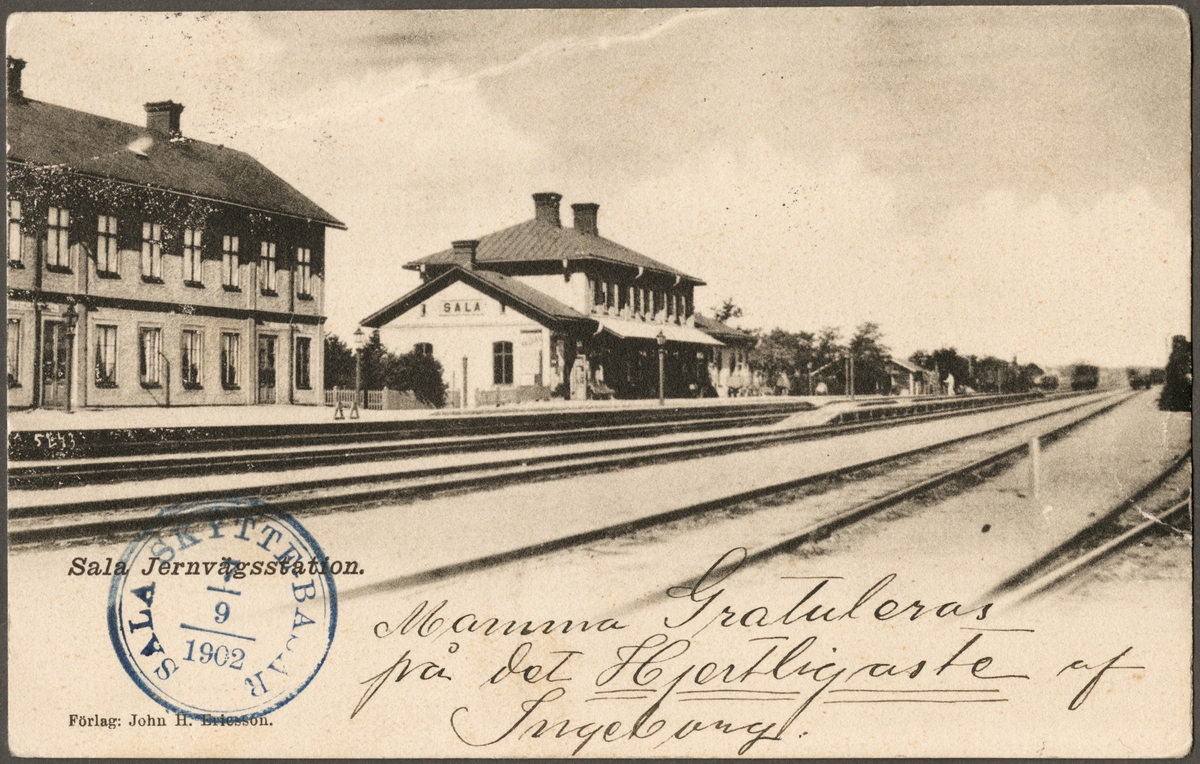 SALA
5643
Sala Jernvägsstation.
SALA SKYTTEBASAR
7
9
1902
Mamma Gratuleras
på det Hjertligaste af
Ingeborg.
Förlag: John H. Ericsson.